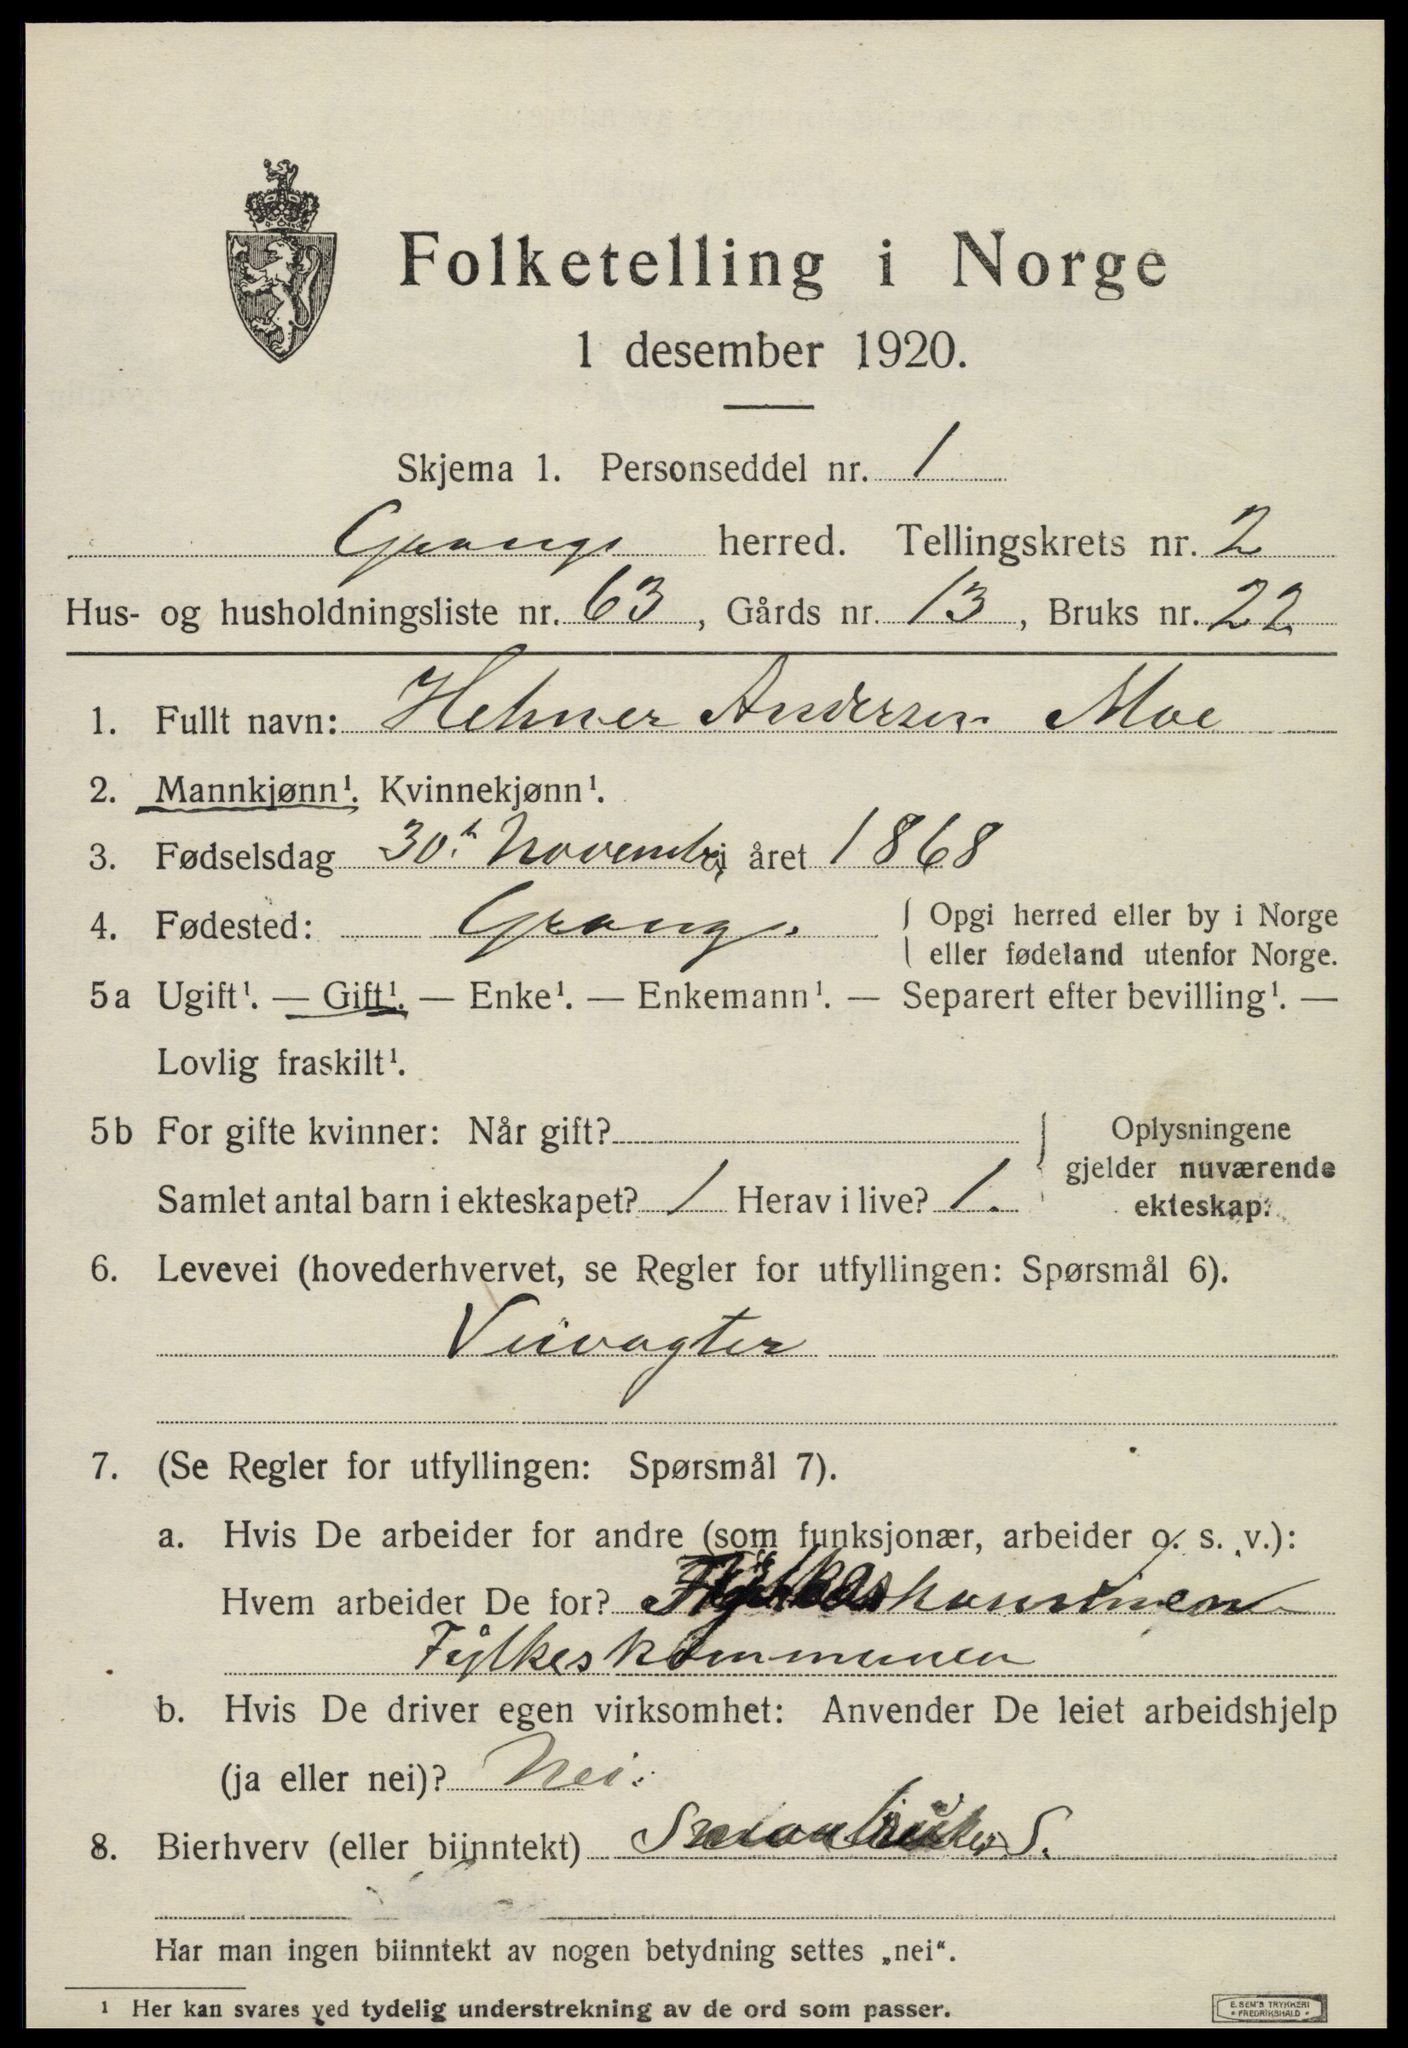 Folketelling i Norge
1 desember 1920.
Skjema 1. Personseddel nr. 1
Grong herred. Tellingskrets nr. 2
Hus- og husholdningsliste nr. 63, Gårds nr. 13, Bruks nr. 22
1. Fullt navn: Helmer Andersen Moe
2. Mannkjønn¹. Kvinnekjønn¹.
3. Fødselsdag 30h November i året 1868
4. Fødested: Grong. { Opgi herred eller by i Norge
eller fødeland utenfor Norge.
5a Ugift¹. — Gift¹. — Enke¹. — Enkemann¹. — Separert efter bevilling¹. —
Lovlig fraskilt¹.
5b For gifte kvinner: Når gift?
Samlet antal barn i ekteskapet? 1 Herav i live? 1.
Oplysningene
gjelder nuværende
ekteskap.
6. Levevei (hovederhvervet, se Regler for utfyllingen: Spørsmål 6).
Veivagter
7. (Se Regler for utfyllingen: Spørsmål 7).
a. Hvis De arbeider for andre (som funksjonær, arbeider o. s. v.):
Hvem arbeider De for?
Fylkeskommunen
b. Hvis De driver egen virksomhet: Anvender De leiet arbeidshjelp
(ja eller nei)? Nei.
8. Bierhverv (eller biinntekt) Smaabruker S.
Har man ingen biinntekt av nogen betydning settes „nei“.
¹ Her kan svares ved tydelig understrekning av de ord som passer.
E. SEM'S TRYKKERI
FREDRIKSHALD